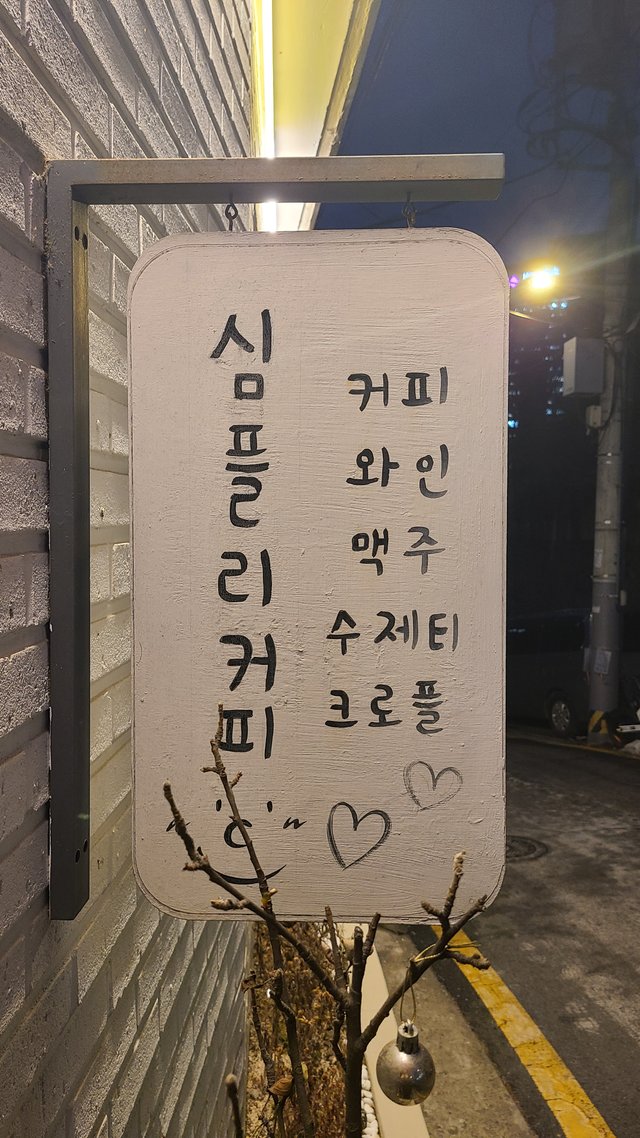 심플리커피
커피
와인
맥주
수제티
크로플